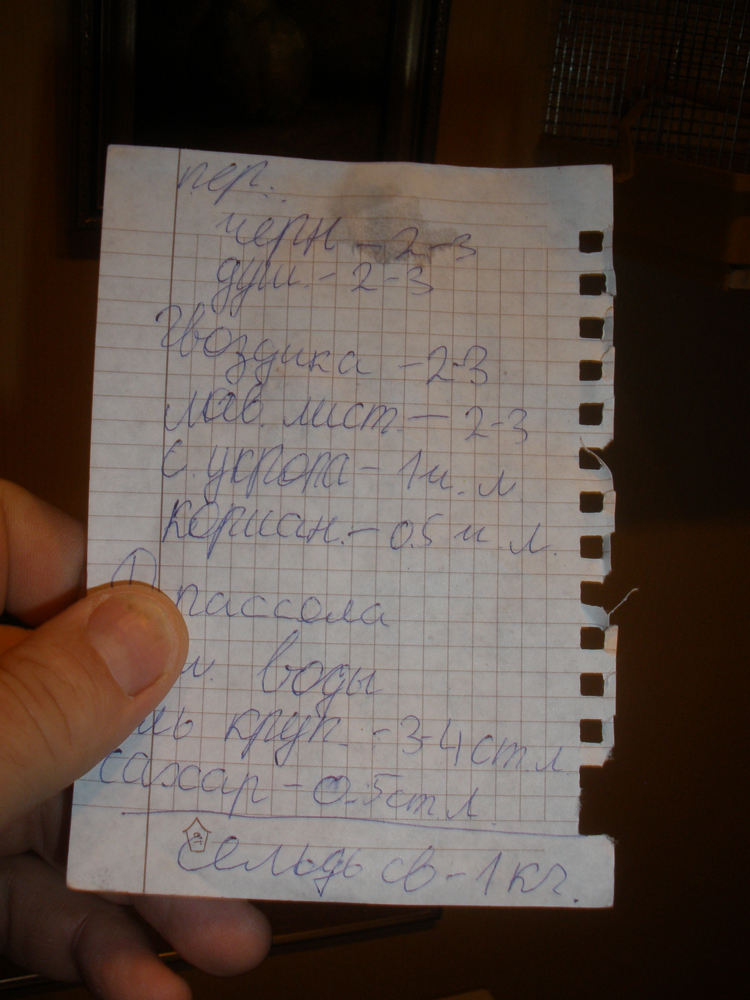 пер.
черн - 2-3
душ. - 2-3
Гвоздика - 2-3
лав. лист. - 2-3
с. укропа - 1 ч. л.
кориан. - 0.5 ч. л.
рассола
л. воды
ль круп. - 3-4 ст л.
сахар - 0.5 ст л.
Сельдь св - 1 кг.